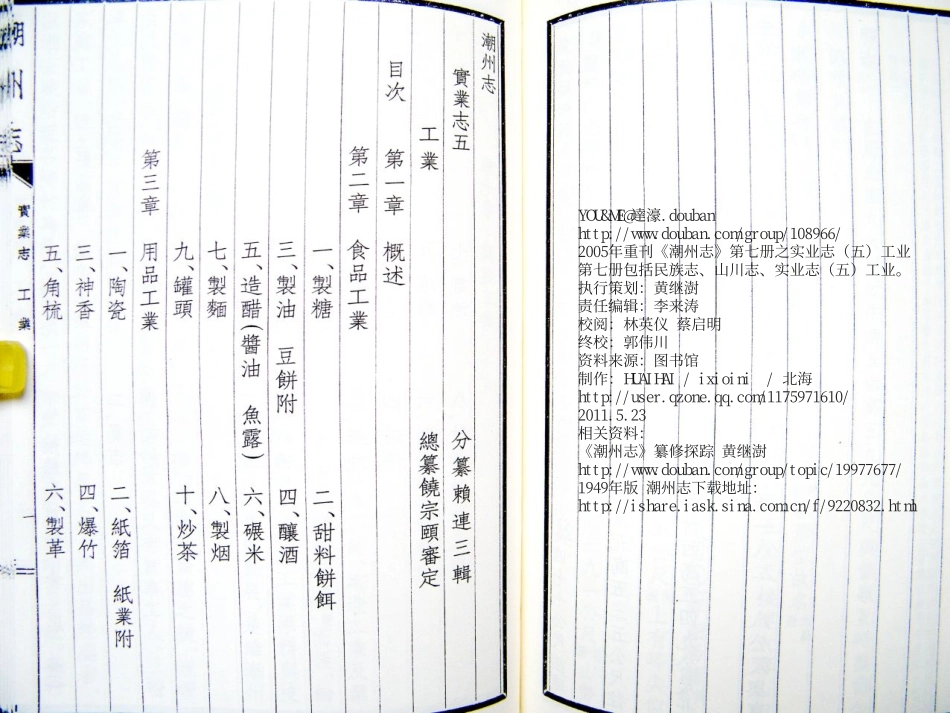 YOU&ME@達濠.douban
http://www.douban.com/group/108966/
2005年重刊《潮州志》第七册之实业志（五）工业
第七册包括民族志、山川志、实业志（五）工业。
执行策划：黄继澍
责任编辑：李来涛
校阅：林英仪 蔡启明
终校：郭伟川
资料来源：图书馆
制作：HUAIHAI / ixioini / 北海
http://user.qzone.qq.com/1175971610/
2011.5.23
相关资料：
《潮州志》纂修探踪 黄继澍
http://www.douban.com/group/topic/19977677/
1949年版 潮州志下载地址：
http://ishare.iask.sina.com.cn/f/9220832.html
潮州志
實業志五 分纂賴連三輯
工業 總纂饒宗頤審定
目次 第一章 概述
第二章 食品工業
一、製糖 二、甜料餅餌
三、製油 豆餅附 四、釀酒
五、造醋（醬油 魚露） 六、碾米
七、製麵 八、製烟
九、罐頭 十、炒茶
第三章 用品工業
一、陶瓷 二、紙箔 紙業附
三、神香 四、爆竹
五、角梳 六、製革
潮州志
實業志 工業
一